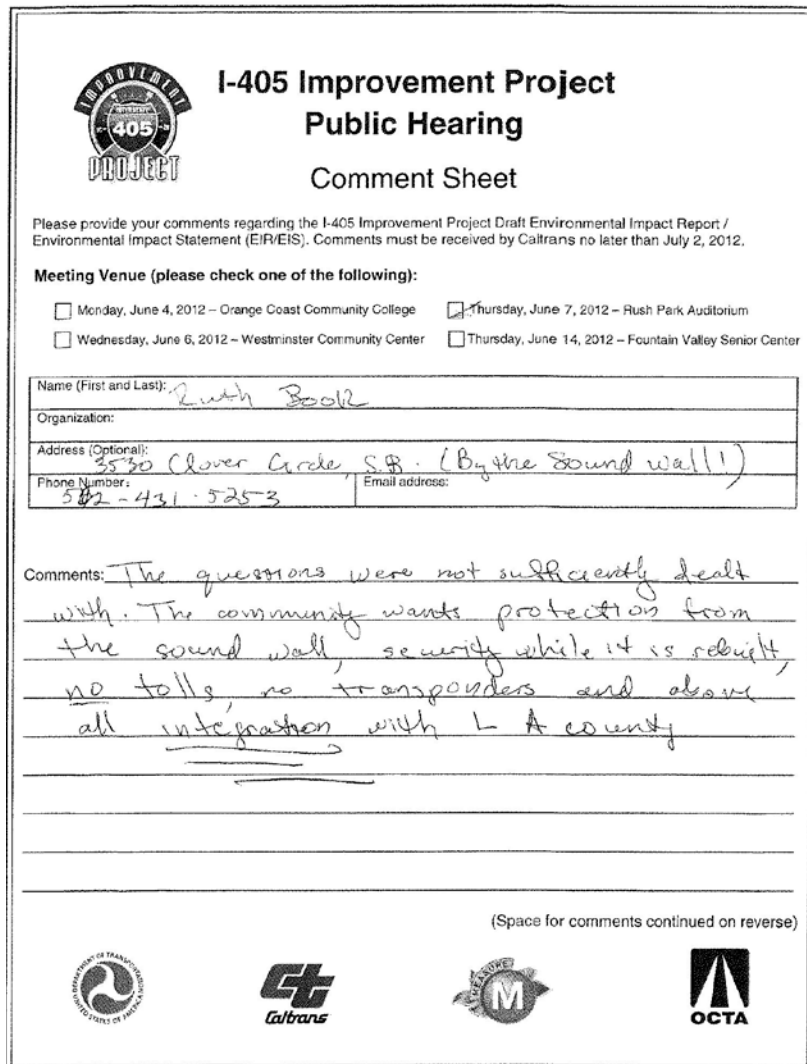 IMPROVEMENT
405
PROJECT
I-405 Improvement Project
Public Hearing
Comment Sheet
Please provide your comments regarding the I-405 Improvement Project Draft Environmental Impact Report /
Environmental Impact Statement (EIR/EIS). Comments must be received by Caltrans no later than July 2, 2012.
Meeting Venue (please check one of the following):
Monday, June 4, 2012 – Orange Coast Community College
Thursday, June 7, 2012 – Rush Park Auditorium
Wednesday, June 6, 2012 – Westminster Community Center
Thursday, June 14, 2012 – Fountain Valley Senior Center
Name (First and Last): Ruth
Organization:
Address (Optional): 3530 Clover Circle, S.B. (By the Sound wall!)
Phone Number: 562-431-5253
Email address:
Comments: The questions were not sufficiently dealt
with. The community wants protection from
the sound wall, security while it is rebuilt,
no tolls, no transponders and above
all integration with L A county
(Space for comments continued on reverse)
DEPARTMENT OF TRANSPORTATION
UNITED STATES OF AMERICA
Caltrans
MEASURE
M
OCTA